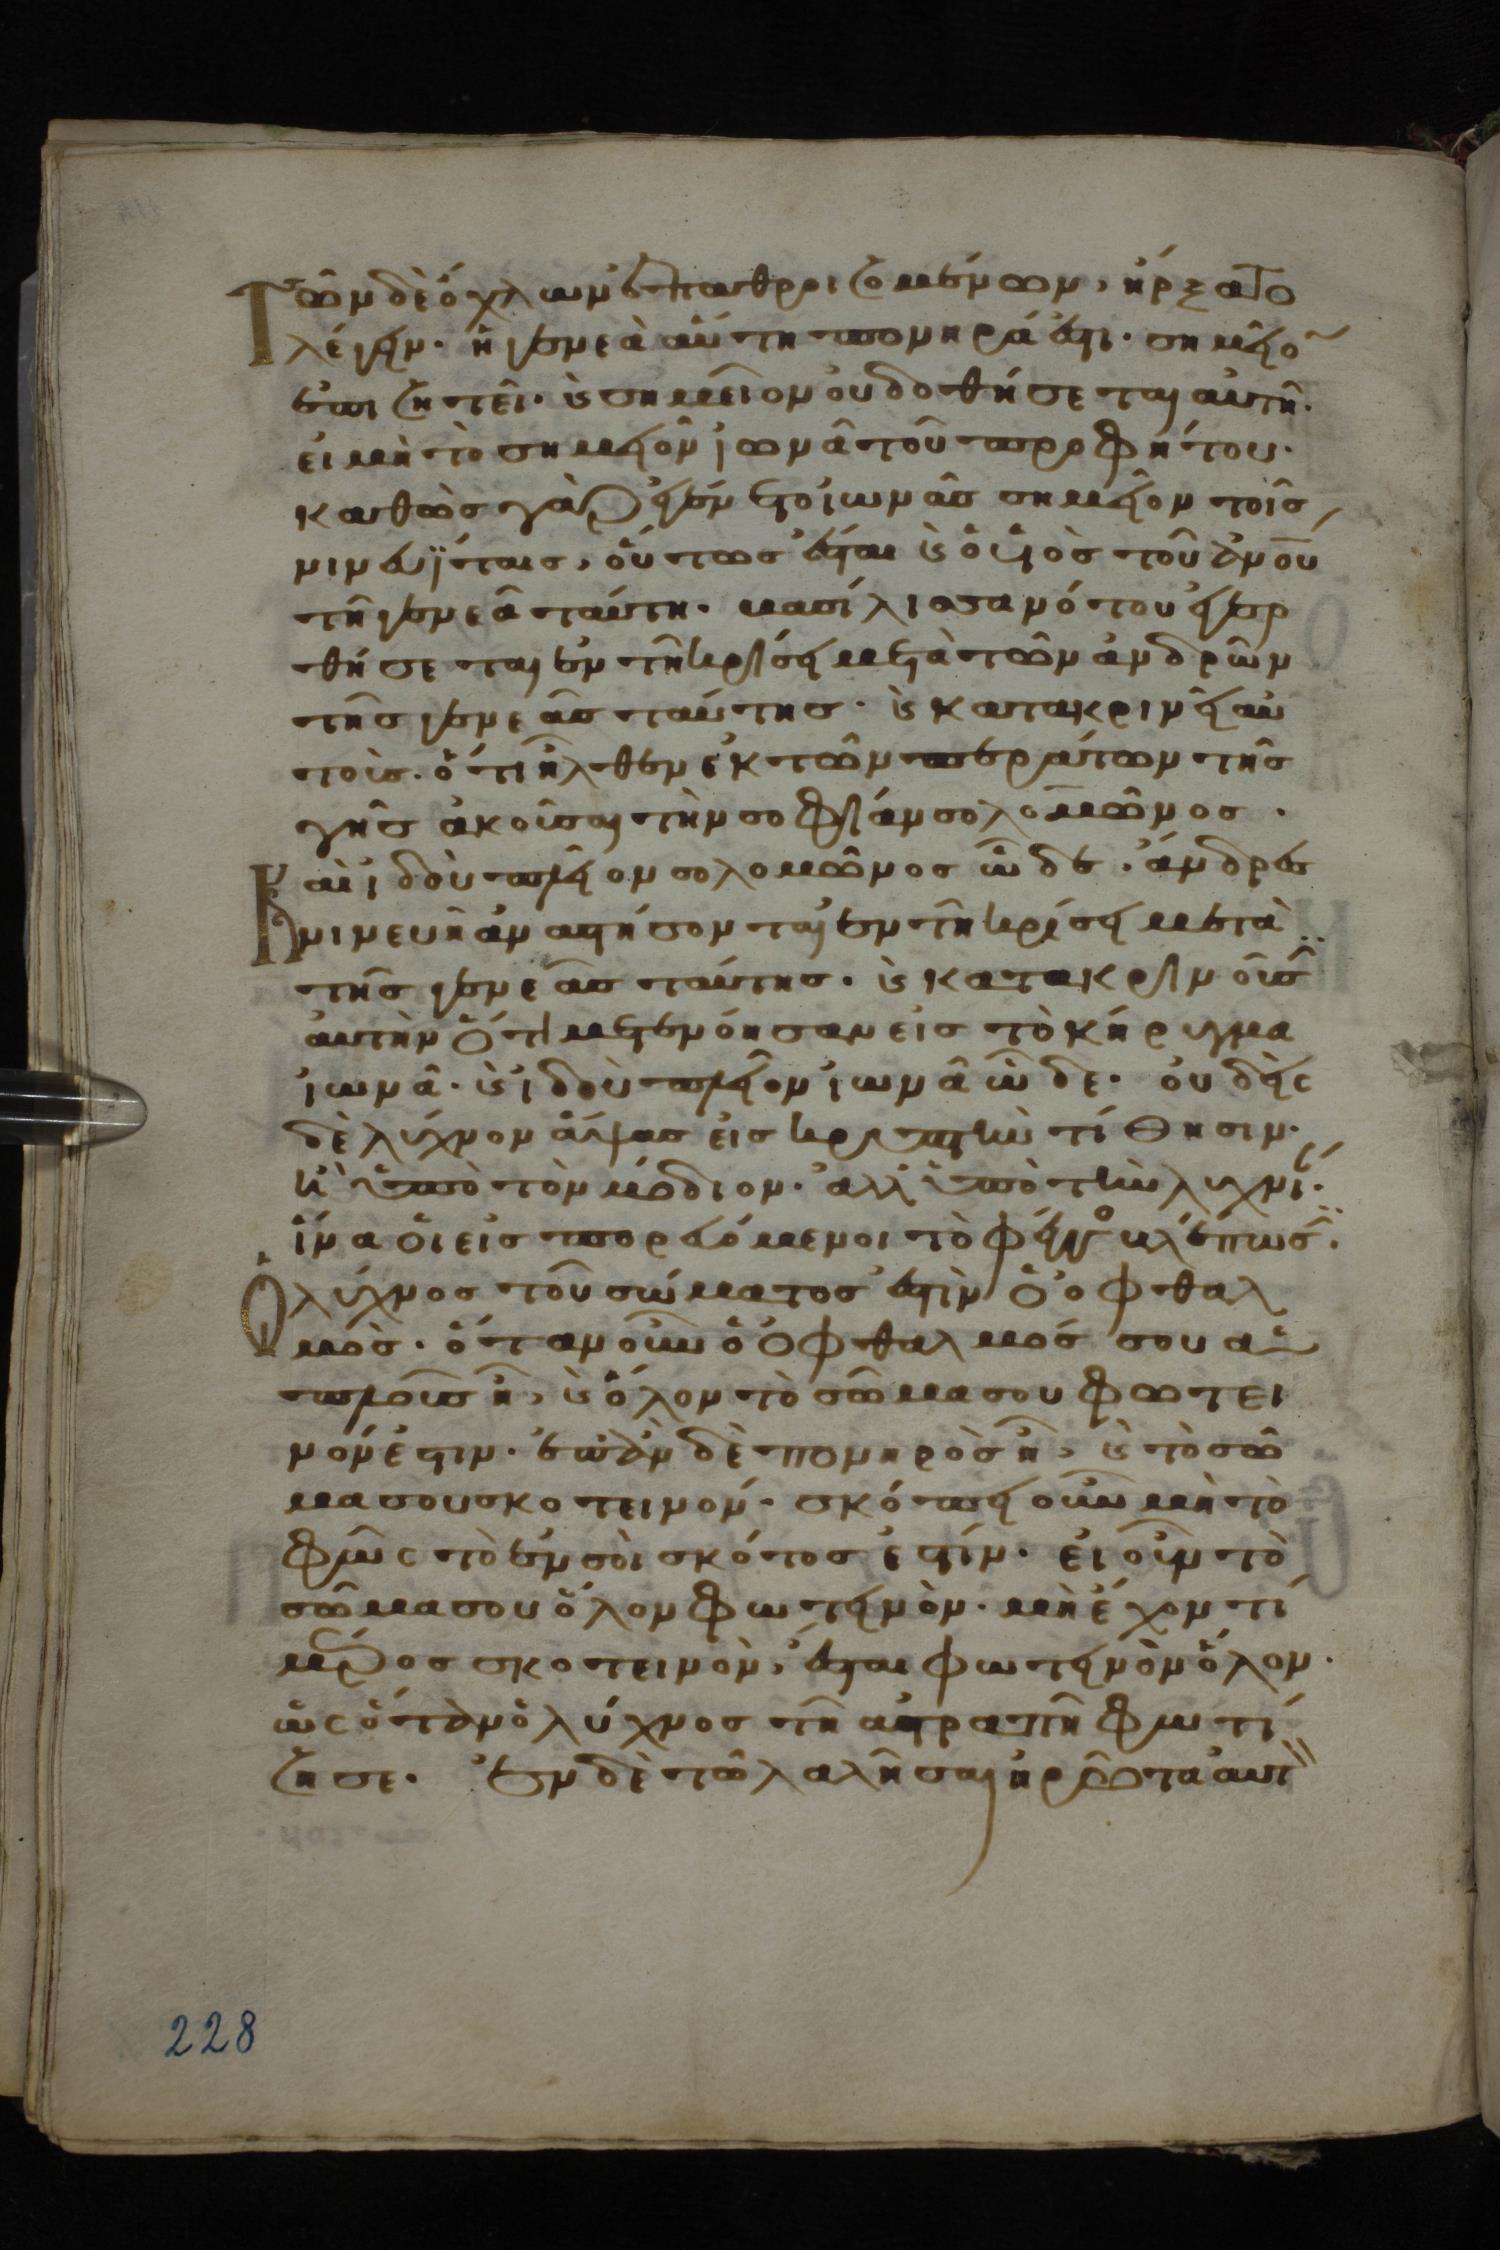 Τῶν δὲ ὄχλων ἐπαθροιζομένων, ἤρξατο
λέγειν· ἡ γενεὰ αὕτη πονηρά ἐστι· σημεῖο
ἐπιζητεῖ· κ σημεῖον οὐ δοθήσεται αὐτῆ·
εἰ μὴ τὸ σημεῖον ἰωνᾶ τοῦ προφήτου·
καθὼς γὰρ ἐγένετο ἰωνᾶς σημεῖον τοῖς
νινευΐταις, οὕτως ἔσται κ ὁ υἱὸς τοῦ ἀνοῦ
τῆ γενεᾶ ταύτη· βασίλισσα νότου ἐγερ
θήσεται ἐν τῆ κρίσει μετὰ τῶν ἀνδρῶν
τῆς γενεᾶς ταύτης· κ κατακρινεῖ αὐ
τοὺς· ὅτι ἦλθεν ἐκ τῶν περάτων τῆς
γῆς ἀκοῦσαι τὴν σοφίαν σολομῶνος·
Καὶ ἰδοὺ πλεῖον σολομῶνος ὧδε· ἄνδρες
νινευῆ ἀναστήσονται ἐν τῆ κρίσει μετὰ
τῆς γενεᾶς ταύτης· κ κατακρινοῦσ
αὐτὴν ὅτι μετενόησαν εἰς τὸ κήρυγμα
ἰωνᾶ· κ ἰδοὺ πλεῖον ἰωνᾶ ὧδε· οὐδεὶς
δὲ λύχνον ἅψας εἰς κρυπτὴν τίθησιν·
οὐδὲ ὑπὸ τὸν μόδιον· ἀλλ' ὑπὸ τὴν λυχνί·
ἵνα οἱ εἰσπορευόμενοι τὸ φέγγο βλέπωσ·
Ὁ λύχνος τοῦ σώματος ἐστὶν ὁ ὀφθαλ
μὸς· ὅταν οὖν ὁ ὀφθαλμός σου ἁ
πλοῦς ἦ, κ ὅλον τὸ σῶμα σου φωτει
νόν ἐστιν· ἐπὰν δὲ πονηρὸς ἦ, κ τὸ σῶ
μα σου σκοτεινόν· σκόπει οὖν μὴ τὸ
φῶς τὸ ἐν σοὶ σκότος ἐστίν· εἰ οὖν τὸ
σῶμα σου ὅλον φωτεινὸν· μὴ ἔχον τί
μέρος σκοτεινὸν, ἔσται φωτεινὸν ὅλον·
ὡς ὅταν ὁ λύχνος τῆ ἀστραπῆ φωτί
ζη σε· Ἐν δὲ τῶ λαλῆσαι ἠρώτα αὐτ
228